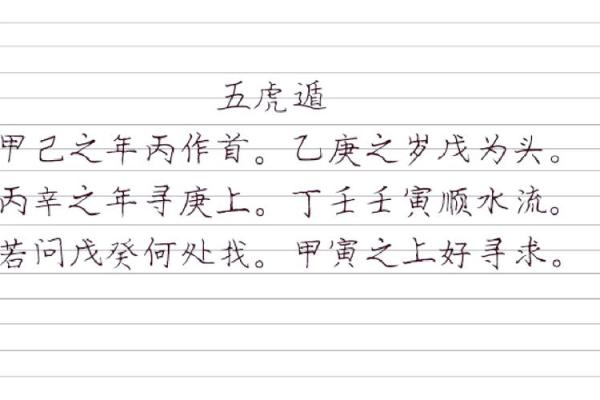 五虎遁
甲己之年丙作首。乙庚之岁戊为头。
丙辛之年寻庚上。丁壬壬寅顺水流。
若问戊癸何处找。甲寅之上好寻求。